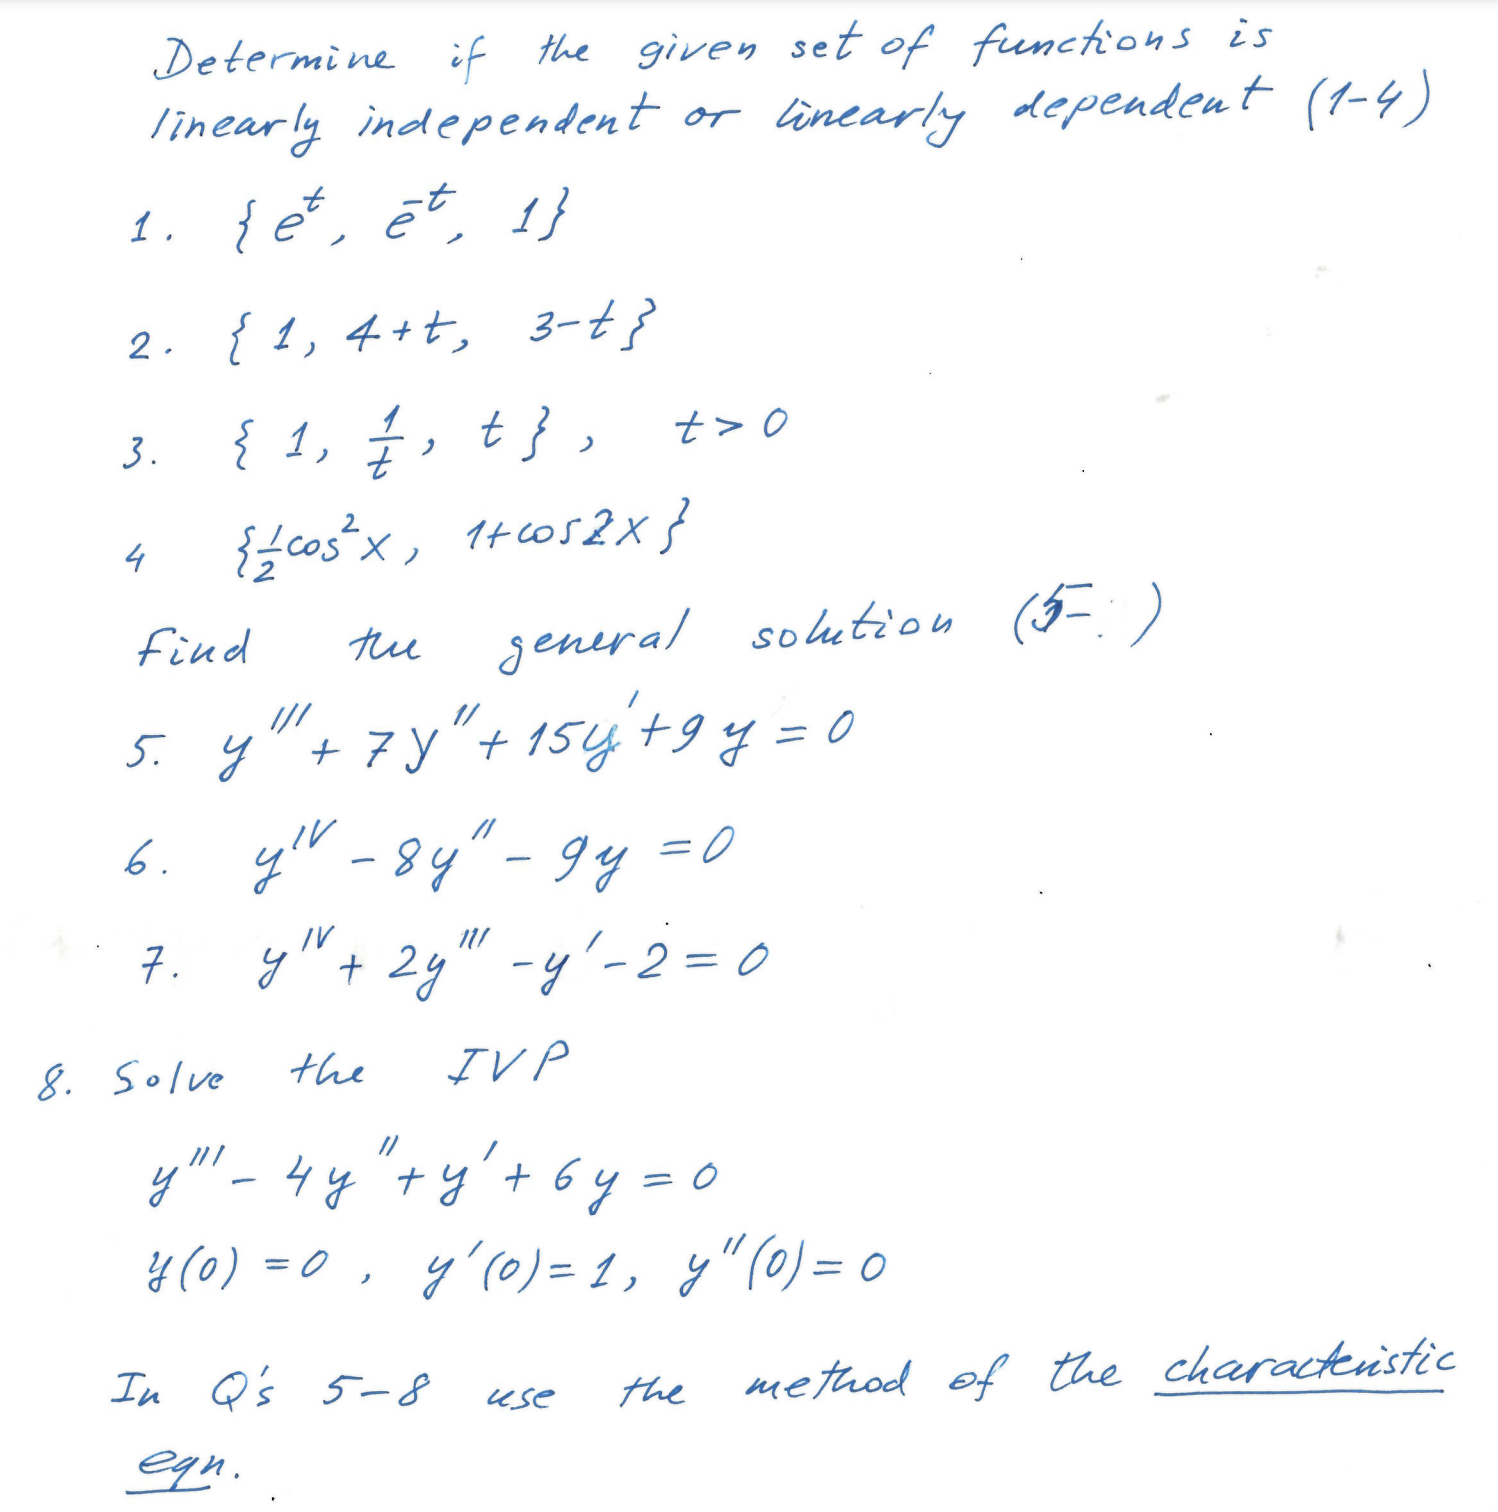 Determine if the given set of functions is
linearly independent or linearly dependent (1-4)
1. { e^t, e^-t, 1}
2. { 1, 4+t, 3-t}
3. { 1, 1/t, t }, t>0
4 {1/2 cos²x, 1+cos2x}
Find the general solution (5- )
5. y''' + 7y'' + 15y' + 9y = 0
6. y^IV - 8y'' - 9y = 0
7. y^IV + 2y''' - y' - 2 = 0
8. Solve the IVP
y''' - 4y'' + y' + 6y = 0
y(0) = 0, y'(0) = 1, y''(0) = 0
In Q's 5-8 use the method of the characteristic
eqn.